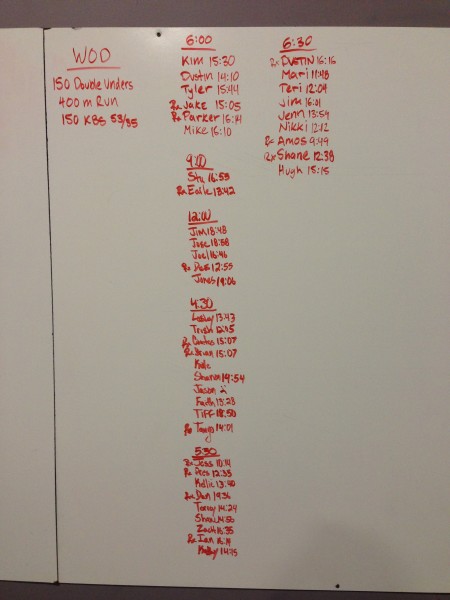 WOD
150 Double Unders
400 m Run
150 KBs 53/35
6:00
Kim 15:30
Dustin 14:10
Tyler 15:44
Rx Jake 15:05
Rx Parker 16:14
Mike 16:10
9:00
Stu 16:53
Rx Erik 13:42
12:00
Jim 18:48
Jose 18:58
Joel 16:46
Rx Dee 12:55
Jones 19:06
4:30
13:43
Trish 12:15
Rx 15:07
Rx Brian 15:07
Kyle
Sharon 14:54
Jason
Faith 13:28
Tiff 18:50
Rx Tango 14:01
5:30
Rx Jess
Rx Dees 12:33
Kellie 13:40
Rx Dan 19:36
Torey 14:24
14:56
Zach 16:35
Rx Ian
14:15
6:30
Rx DUSTIN 16:16
Mari 11:48
Teri 12:04
Jim 16:01
Jenn 13:59
Nikki 12:12
Rx Amos 9:49
Rx Shane 12:38
Hugh 15:15